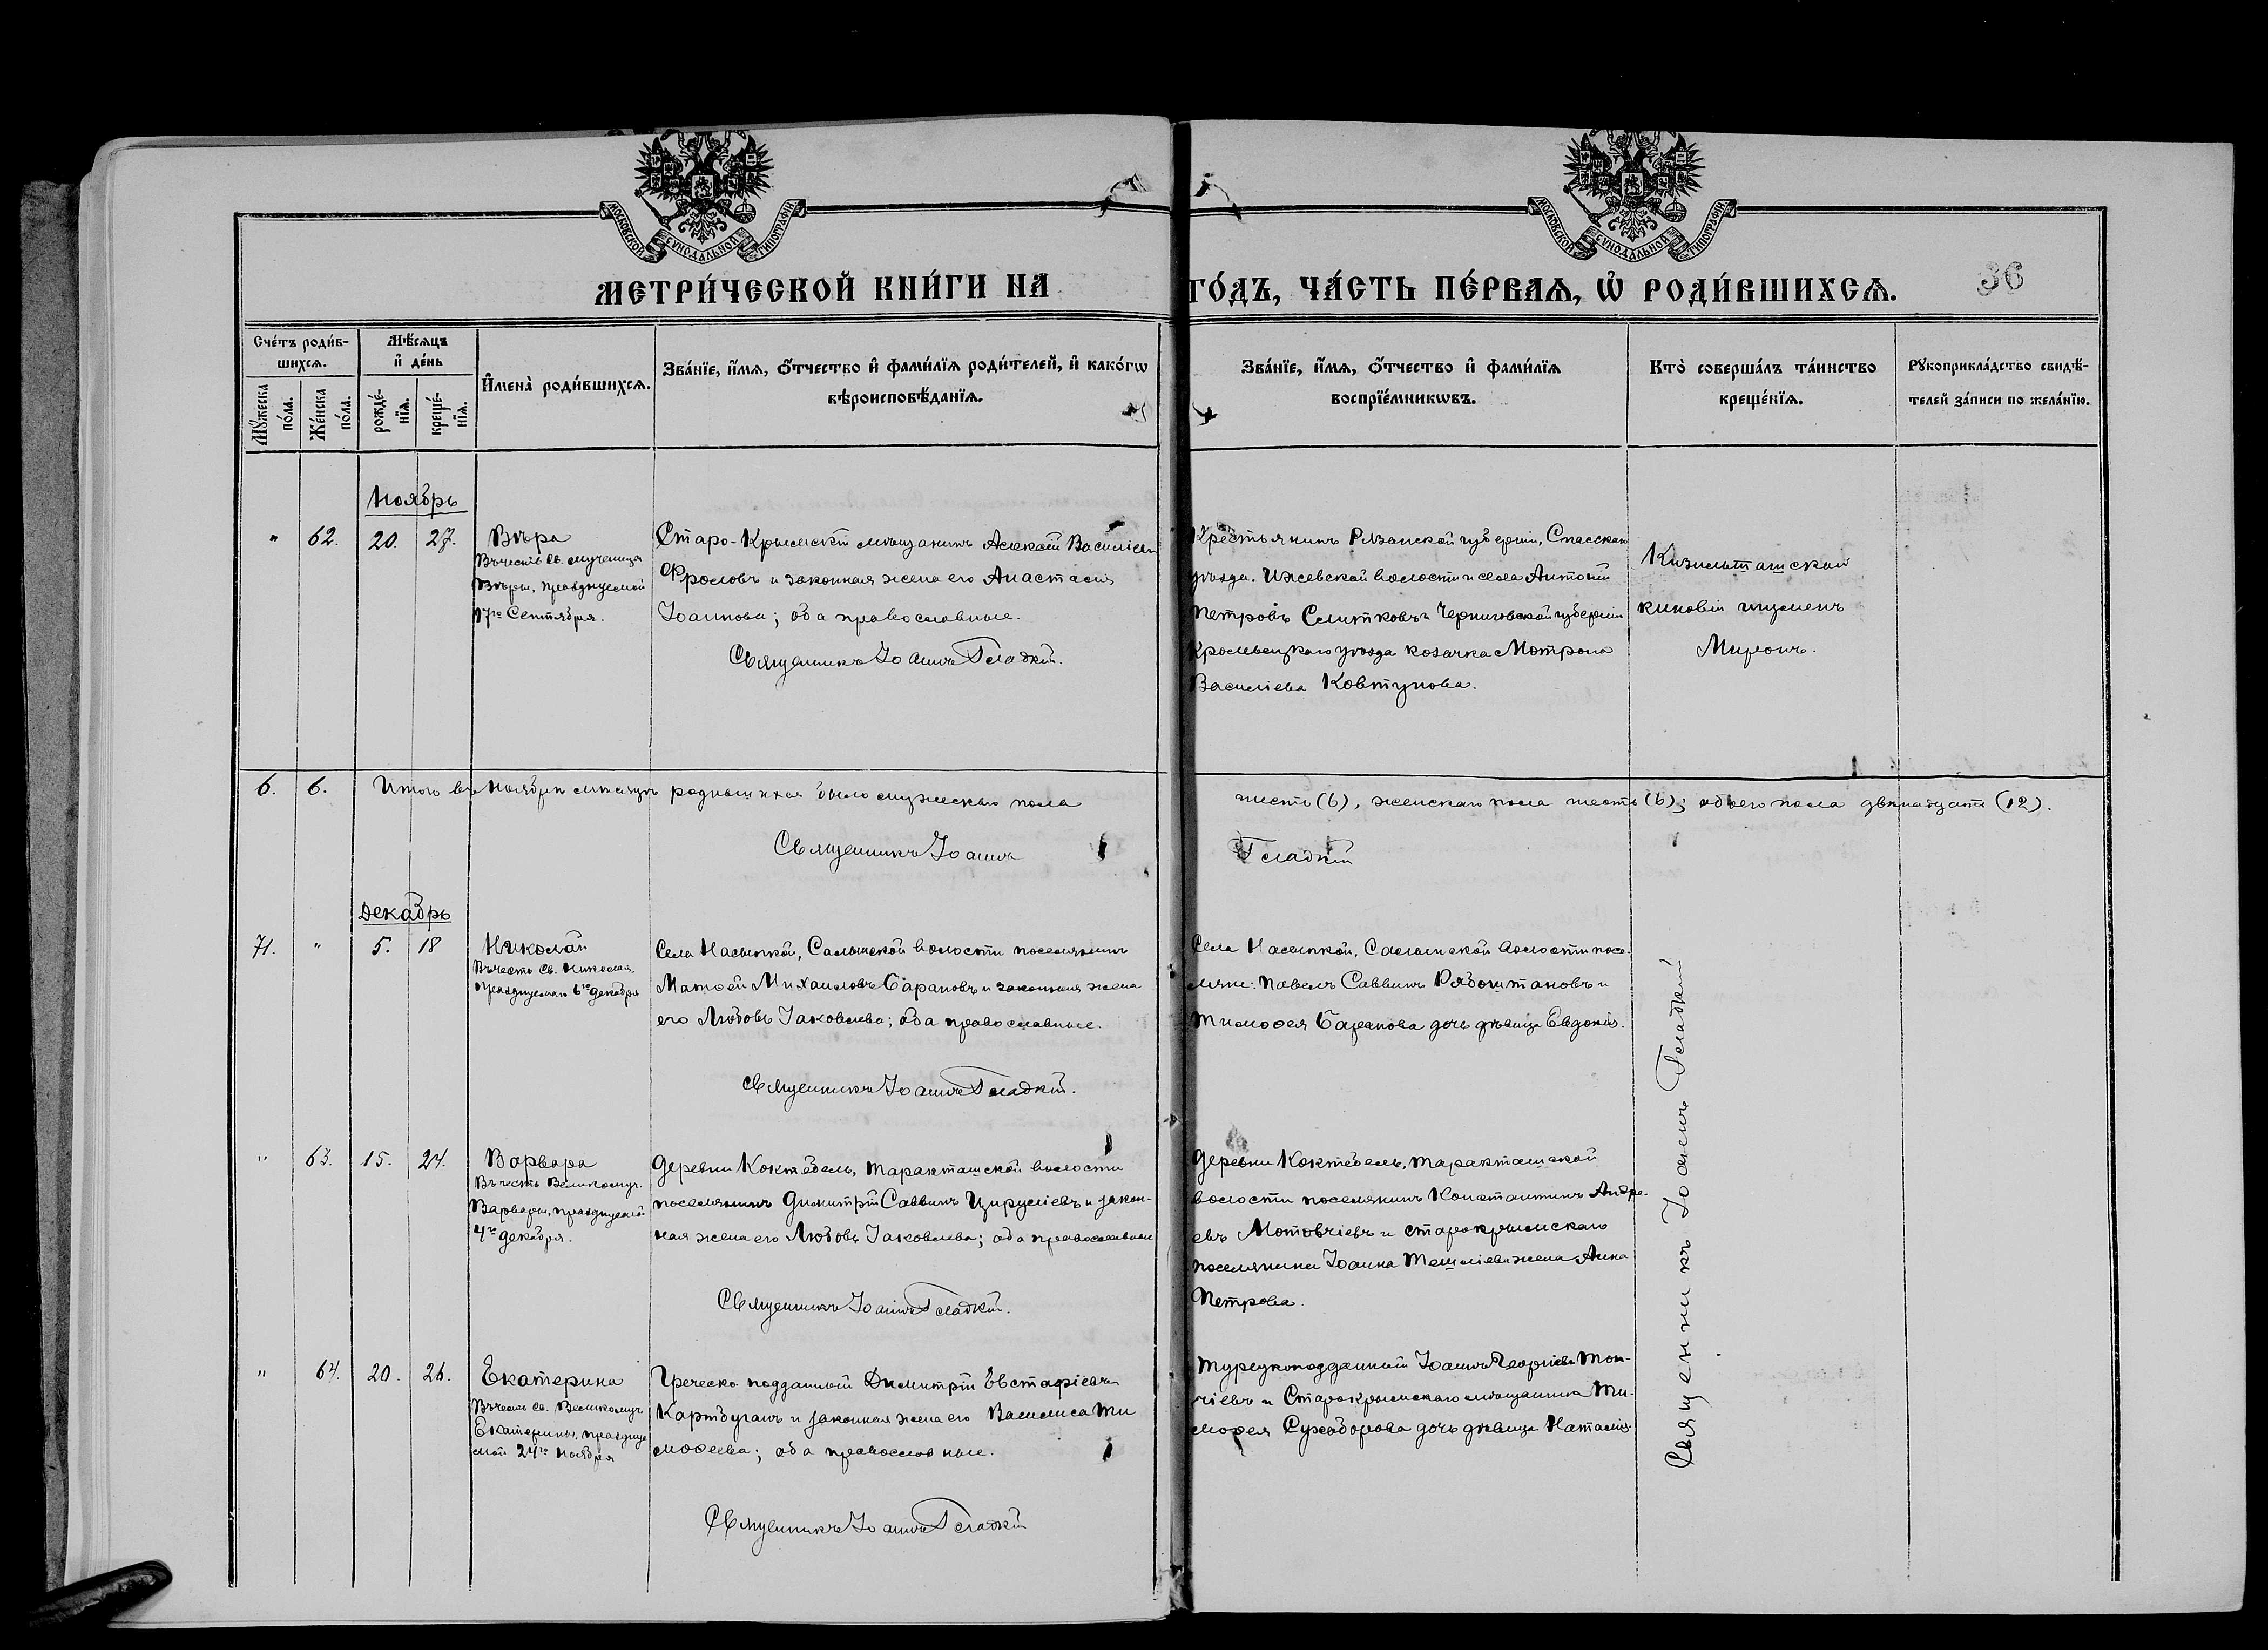 МОСКОВСКОЙ СѴНОДАЛЬНОЙ ТИПОГРАФІИ
МОСКОВСКОЙ СѴНОДАЛЬНОЙ ТИПОГРАФІИ
МЕТРИ́ЧЕСКОЙ КНИ́ГИ НА ГО́ДЪ, ЧА́СТЬ ПЕ́РВАѦ, Ѡ҆ РОДИ́ВШИХСѦ.
36
Сче́тъ роди́в-
шихсѧ.
Мꙋ́жеска по́ла.
Же́нска по́ла.
Мѣ́сѧцъ
и҆ де́нь
рожде́-
нїѧ.
креще́-
нїѧ.
И҆мена̀ роди́вшихсѧ.
Зва́нїе, и҆́мѧ, ѻ҆́тчество и҆ фами́лїѧ роди́телей, и҆ како́гѡ
вѣроисповѣ́данїѧ.
Зва́нїе, и҆́мѧ, ѻ҆́тчество и҆ фами́лїѧ
воспрїе́мникѡвъ.
Кто̀ соверша́лъ та́инство
креще́нїѧ.
Рꙋкоприкла́дство свидѣ́-
телей за́писи по жела́нїю.
Ноябрь
" 62. 20. 27.
Вѣра
Въ честь св. мученицы
Вѣры, празднуемой
17го Сентября.
Старо-Крымскій мѣщанинъ Алексій Василіевъ
Фроловъ и законная жена его Анастасія
Іоаннова; оба православные.
Священникъ Іоаннъ Гладкій.
Крестьянинъ Рязанской губерніи, Спасскаго
уѣзда, Ижевской волости и села Антоній
Петровъ Слитковъ и Черниговской губерніи
Кролевецкаго уѣзда козачка Мотрона
Василіева Ковтунова.
Кизилташской
киновіи игуменъ
Миронъ.
6. 6. Итого въ Ноябрѣ мѣсяцѣ родившихся было мужескаго пола шесть (6), женскаго пола шесть (6); обоего пола двѣнадцать (12).
Священникъ Іоаннъ Гладкій
Декабрь
71. " 5. 18
Николай
Въ честь Св. Николая,
празднуемаго 6го декабря
Села Насыпкой, Салынской волости поселянинъ
Матөей Михаиловъ Барановъ и законная жена
его Любовь Іаковлева; оба православные.
Священникъ Іоаннъ Гладкій.
Села Насыпкой, Салынской волости посе-
ляне: Павелъ Саввинъ Рябоштановъ и
Тимоөея Баранова дочь дѣвица Евдокія.
" 63. 15. 24.
Варвара
Въ честь Великомуч.
Варвары, празднуемой
4го декабря.
Деревни Коктебель, Таракташской волости
поселянинъ Димитрій Саввинъ Цируліевъ и закон-
ная жена его Любовь Іаковлева; оба православные
Священникъ Іоаннъ Гладкій.
Деревни Коктебель, Таракташской
волости поселянинъ Константинъ Андре-
евъ Мотовчіевъ и старокрымскаго
поселянина Іоанна жена Анна
Петрова.
" 64. 20. 26.
Екатерина
Въ честь св. Великомуч.
Екатерины, праздну-
мой 24го Ноября
Греческо подданный Димитрій Евстафіевъ
и законная жена его Василиса Ти
моөеева; оба православные.
Священникъ Іоаннъ Гладкій
Турецкоподданный Іоаннъ Георгіевъ Тон-
чіевъ и Старокрымскаго мѣщанина Ти-
моөея Сухоборова дочь дѣвица Наталія.
Священникъ Іоаннъ Гладкій